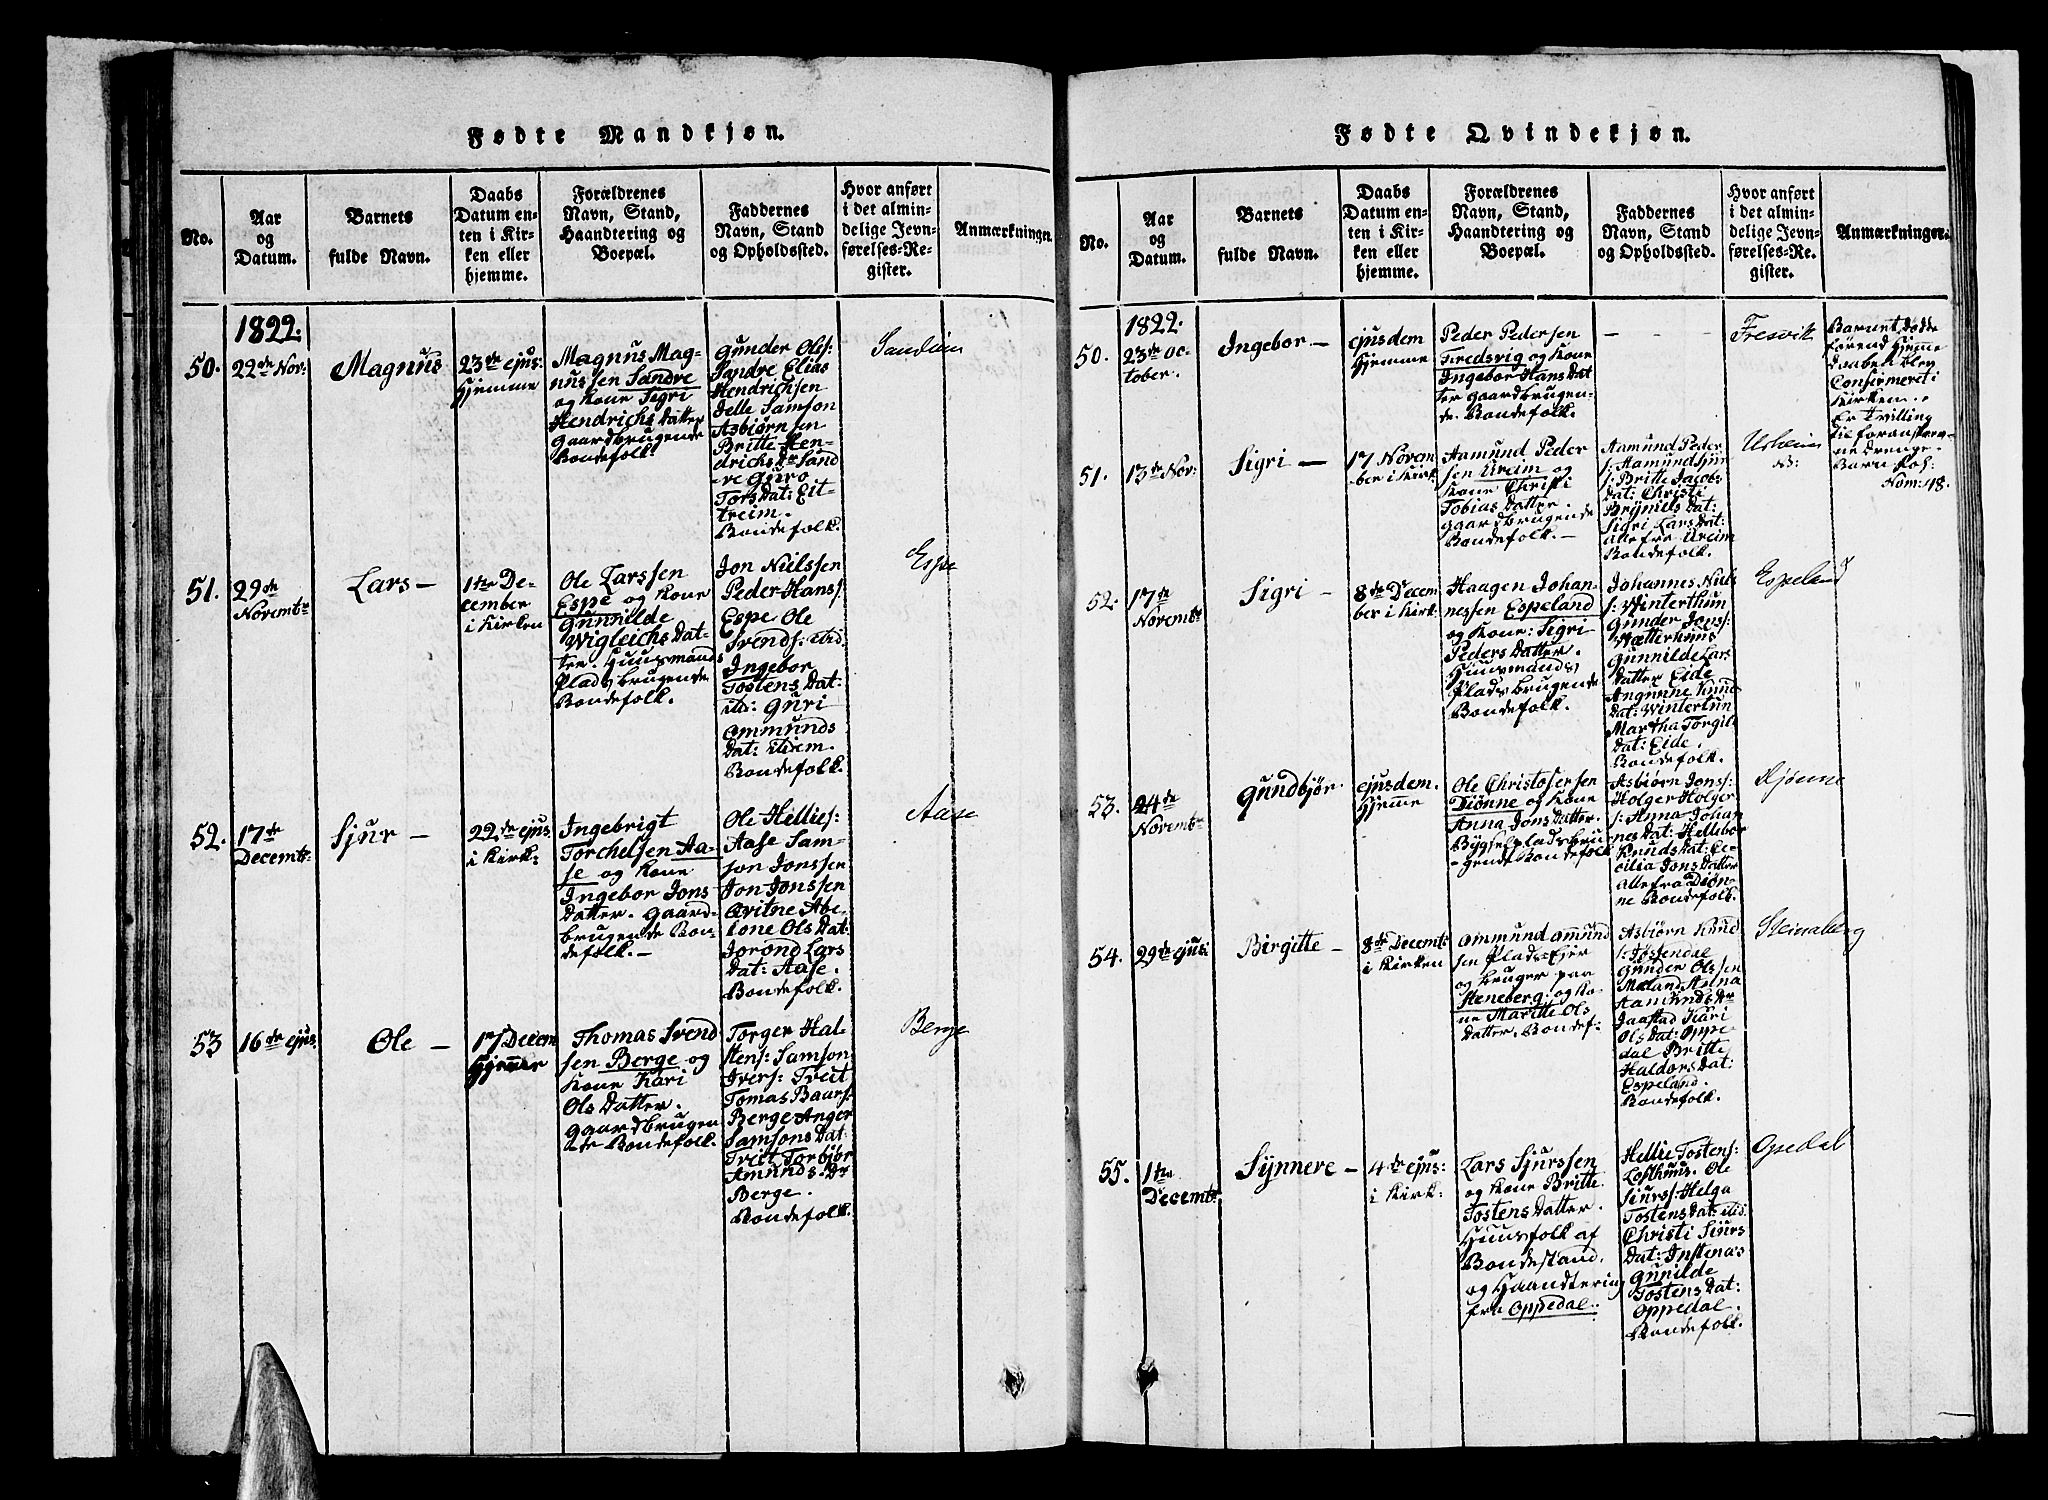 Fødte Mandkjøn.
No.
Aar
og
Datum.
Barnets
fulde Navn.
Daabs
Datum en-
ten i Kir-
ken eller
hjemme.
Forældrenes
Navn, Stand,
Haandtering og
Boepæl.
Faddernes
Navn, Stand
og Opholdssted.
Hvor anført
i det almin-
delige Jevn-
førelses-Re-
gister.
Anmærkninger.
1822.
50.
22de Nov:
Magnus
23de ejus:
Hjemme
Magnus Mag-
nussen Sandre
og Kone Sigri
Hendrichs Datter
Gaardbrugende
Bondefolk.
Gunder Oles:
Sandre Elias
Hendrichsen
Samson
Asbiørnsen
Britte Hen-
drichs Dr Sand
re Guro
Tors Dat: Eit-
treim.
Bondefolk.
51.
29de
Novembr
Lars —
1ste De-
cember
i Kirken
Ole Larssen
Espe og Kone
Gunnilde
Wigleichs Dat-
ter. Huusmands
Plads brugende
Bondefolk.
Jon Nielssen
Peder Hans:
Espe Ole
Svends: itid:
Ingebor
Tostens Dat:
itid: Guri
Ommunds
Dat: itidem.
Bondefolk.
Espe
52.
17de
Decembr:
Sjur —
22de ejus:
i Kirk:
Ingebrigt
Torchelsen Aa-
se og Kone
Ingebor Jons
Datter. Gaard-
brugende Bon-
defolk. —
Ole Hellies:
Aase Sam-
son Jonssen
Jon Jonssen
Qvitne Abe-
lone Ols Dat:
Jorond Lars
Dat: Aase.
Bondefolk.
Aase
53
16de ejus.
Ole —
17 Decem
Hjemme
Thomas Svend
sen Berge og
Kone Kari
Ols Datter.
Gaardbrugen
de Bondefolk.
Torger Hal-
stens: Samson
Ivers: Tveit
Tomas Baars:
Berge Anger
Samsons Dat:
Tveit Torbjør
Amunds Dr
Berge.
Bondefolk.
Berge
Fødte Qvindekjøn.
No.
Aar
og
Datum.
Barnets
fulde Navn.
Daabs
Datum en-
ten i Kir-
ken eller
hjemme.
Forældrenes
Navn, Stand,
Haandtering og
Boepæl.
Faddernes
Navn, Stand
og Opholdssted.
Hvor anført
i det almin-
delige Jevn-
førelses-Re-
gister.
Anmærkninger.
1822.
50.
23de Oc-
tober.
Ingebor —
ejusdem
Hjemme
Peder Pedersen
Fredsvig og Kone
Ingebor Hans Dat
ter Gaardbrugen-
de Bondefolk.
— — —
Fresvik
Barnet, døde
førend Hjemme
Daaben blev
Confirmeret i
Kirken.
Er Tvilling
til foranskrev-
ne Drenge-
Barn
Nom: 48.
51.
13de Nov:
Sigri —
17 Novem
ber i Kirk
Aamund Peder
sen Ureim og
Kone Christi
Tobias Datter.
Gaardbrugende
Bondefolk. —
Aamund Peder
s: Aamund Sjur
s: Britte Jacobs
Dat: Christi
Brynjels Dat:
Sigri Lars Dat:
alle fra Ureim
Bondefolk.
52.
17de
Novembr
Sigri —
8de Decem
ber i Kirk
Haagen Johan
nessen Espeland
og Kone: Sigri
Peders Datter.
Huusmands
Plads brugende
Bondefolk.
Johannes Niels
s: Winterthun
Gunder Jons:
Wætterhuus
Gunnilde Lars
Datter Eide
Angunne Knud
Dat: Wintertun
Martha Torgils
Dat: Eide.
Bondefolk.
Espeland
53.
24de
Novembr
Gundbjør
ejusdem.
Hjemme
Ole Christofersen
Diønne og Kone
Anna Jons Datter.
Bygselpladsbru-
gende Bondefolk
Asbiørn Jons:
Holger Holger
s: Anna Johan
nes Dat: Hellebor
Knuds Dat: Ce-
cilia Jons Datter
alle fra Diøn-
ne Bondefolk.
Djønne
54.
29de ejus:
Birgitte —
8de Decemb:
i Kirken
Ommund Omund
sen Plads-Ejer
og bruger paa
Steneberg og Ko-
ne Maritte Ols
Datter. Bondef-
Asbiørn Knud
s: Jøstendal
Gunder Olssen
Mæland Anna
Aamunds Dr
Jaastad Kari
Ols Dat: Oppe
dal Britte
Haldors Dat:
Espeland.
Bondefolk.
Steinaberg
55.
1ste
Decembr
Synnere —
4de ejus:
i Kirk:
Lars Sjurssen
og Kone Britte
Tostens Datter.
Huusfolk af
Bondestand.
og Haandtering
fra Oppedal.
Hellie Tostens:
Losthuus. Ole
Siurs: Helga
Tostens Dat: itid:
Christi Siurs
Dat: Instenæs
Gunnilde
Tostens Dat:
Oppedal.
Bondefolk.
Opedal